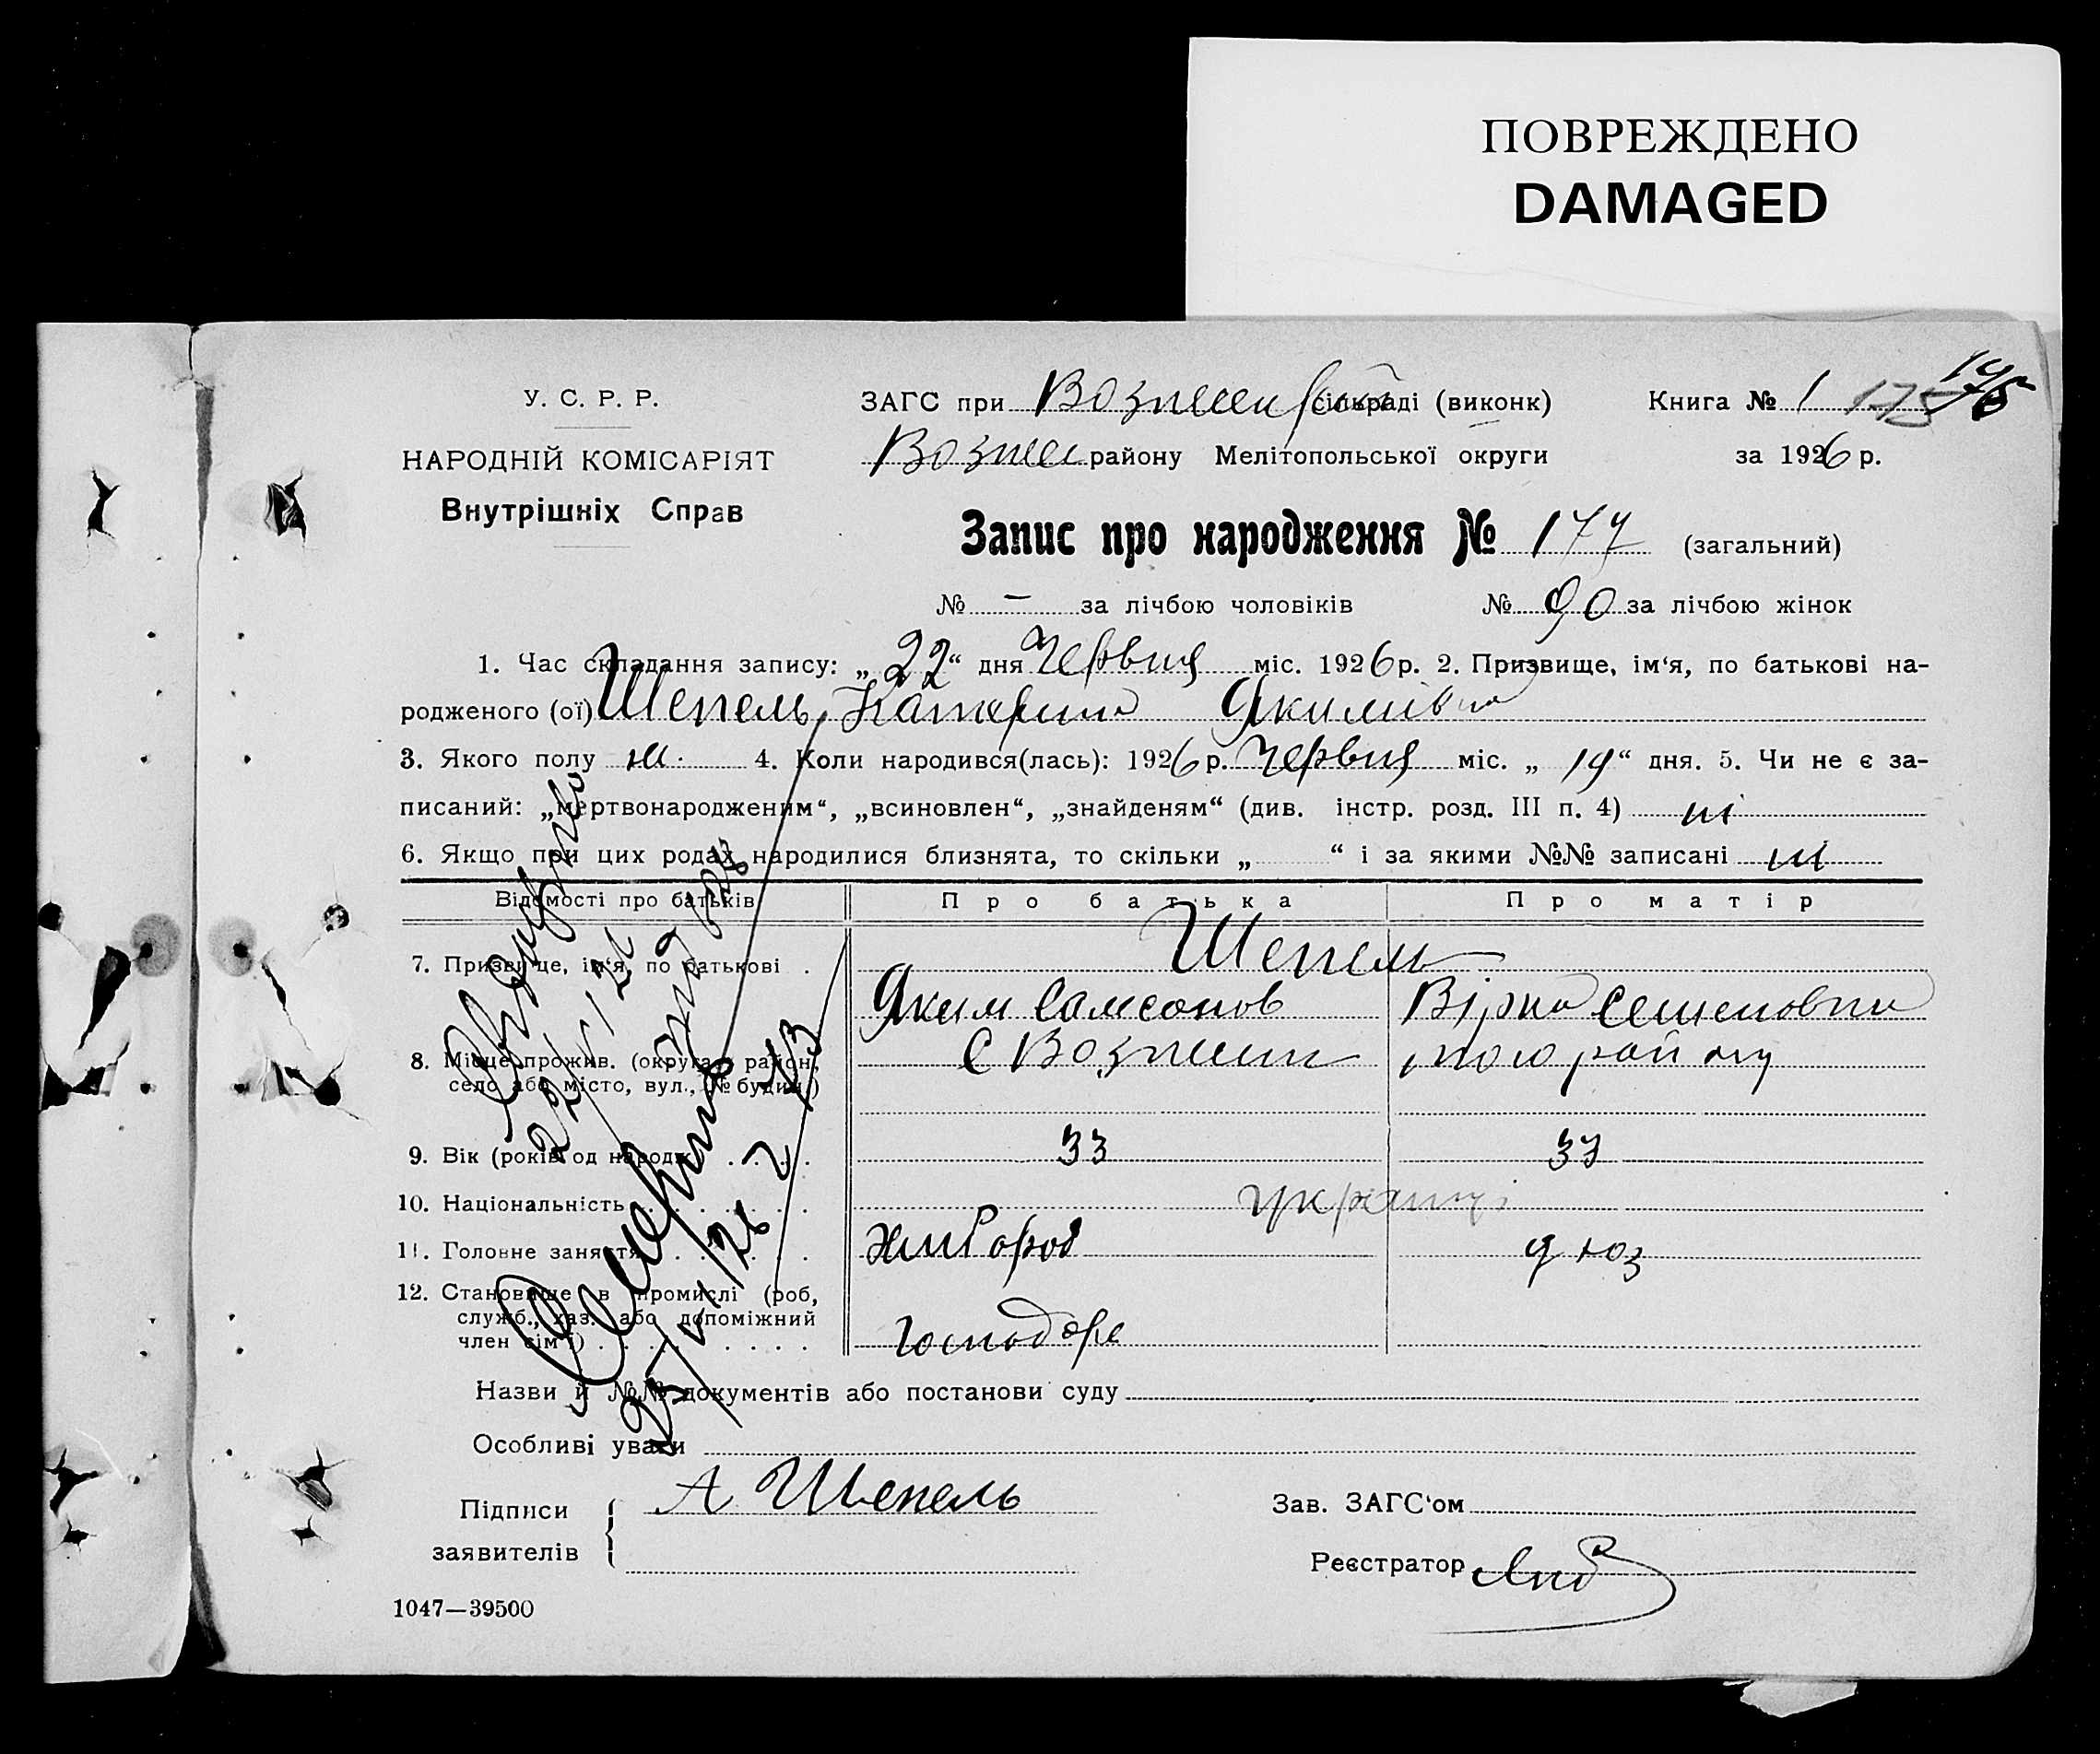 ПОВРЕЖДЕНО
DAMAGED
У. С. Р. Р.
НАРОДНІЙ КОМІСАРІЯТ
Внутрішніх Справ
ЗАГС при сільраді (виконк)
Книга № 1
району Мелітопольської округи
за 1926 р.
Запис про народження № 177 (загальний)
№ — за лічбою чоловіків № 90 за лічбою жінок
1. Час складання запису: „22“ дня Червня міс. 1926 р. 2. Призвище, ім‘я, по батькові на-
родженого (ої) Шепель Катерина Якимівна
3. Якого полу ж. 4. Коли народився(лась): 1926 р. Червня міс. „19“ дня. 5. Чи не є за-
писаний: „мертвонародженим“, „всиновлен“, „знайденям“ (див. інстр. розд. III п. 4) ні
6. Якщо при цих родах народилися близнята, то скільки „ “ і за якими №№ записані ні
Відомості про батьків
Про батька
Про матір
7. Призвище, ім‘я, по батькові .
Шепель
Яким Самсонов
Віра Семеновна
8. Місце прожив. (округа, район,
село або місто, вул., № будин.)
того району
9. Вік (років од народж.
33
33
10. Національність
українці
11. Головне заняття
12. Становище в промислі (роб,
служб., хаз. або допоміжний
член сім‘ї)
Господарь
Назви й №№ документів або постанови суду
Особливі уваги
Підписи
заявителів
А Шепель
Зав. ЗАГС‘ом
Реєстратор
1047—39500